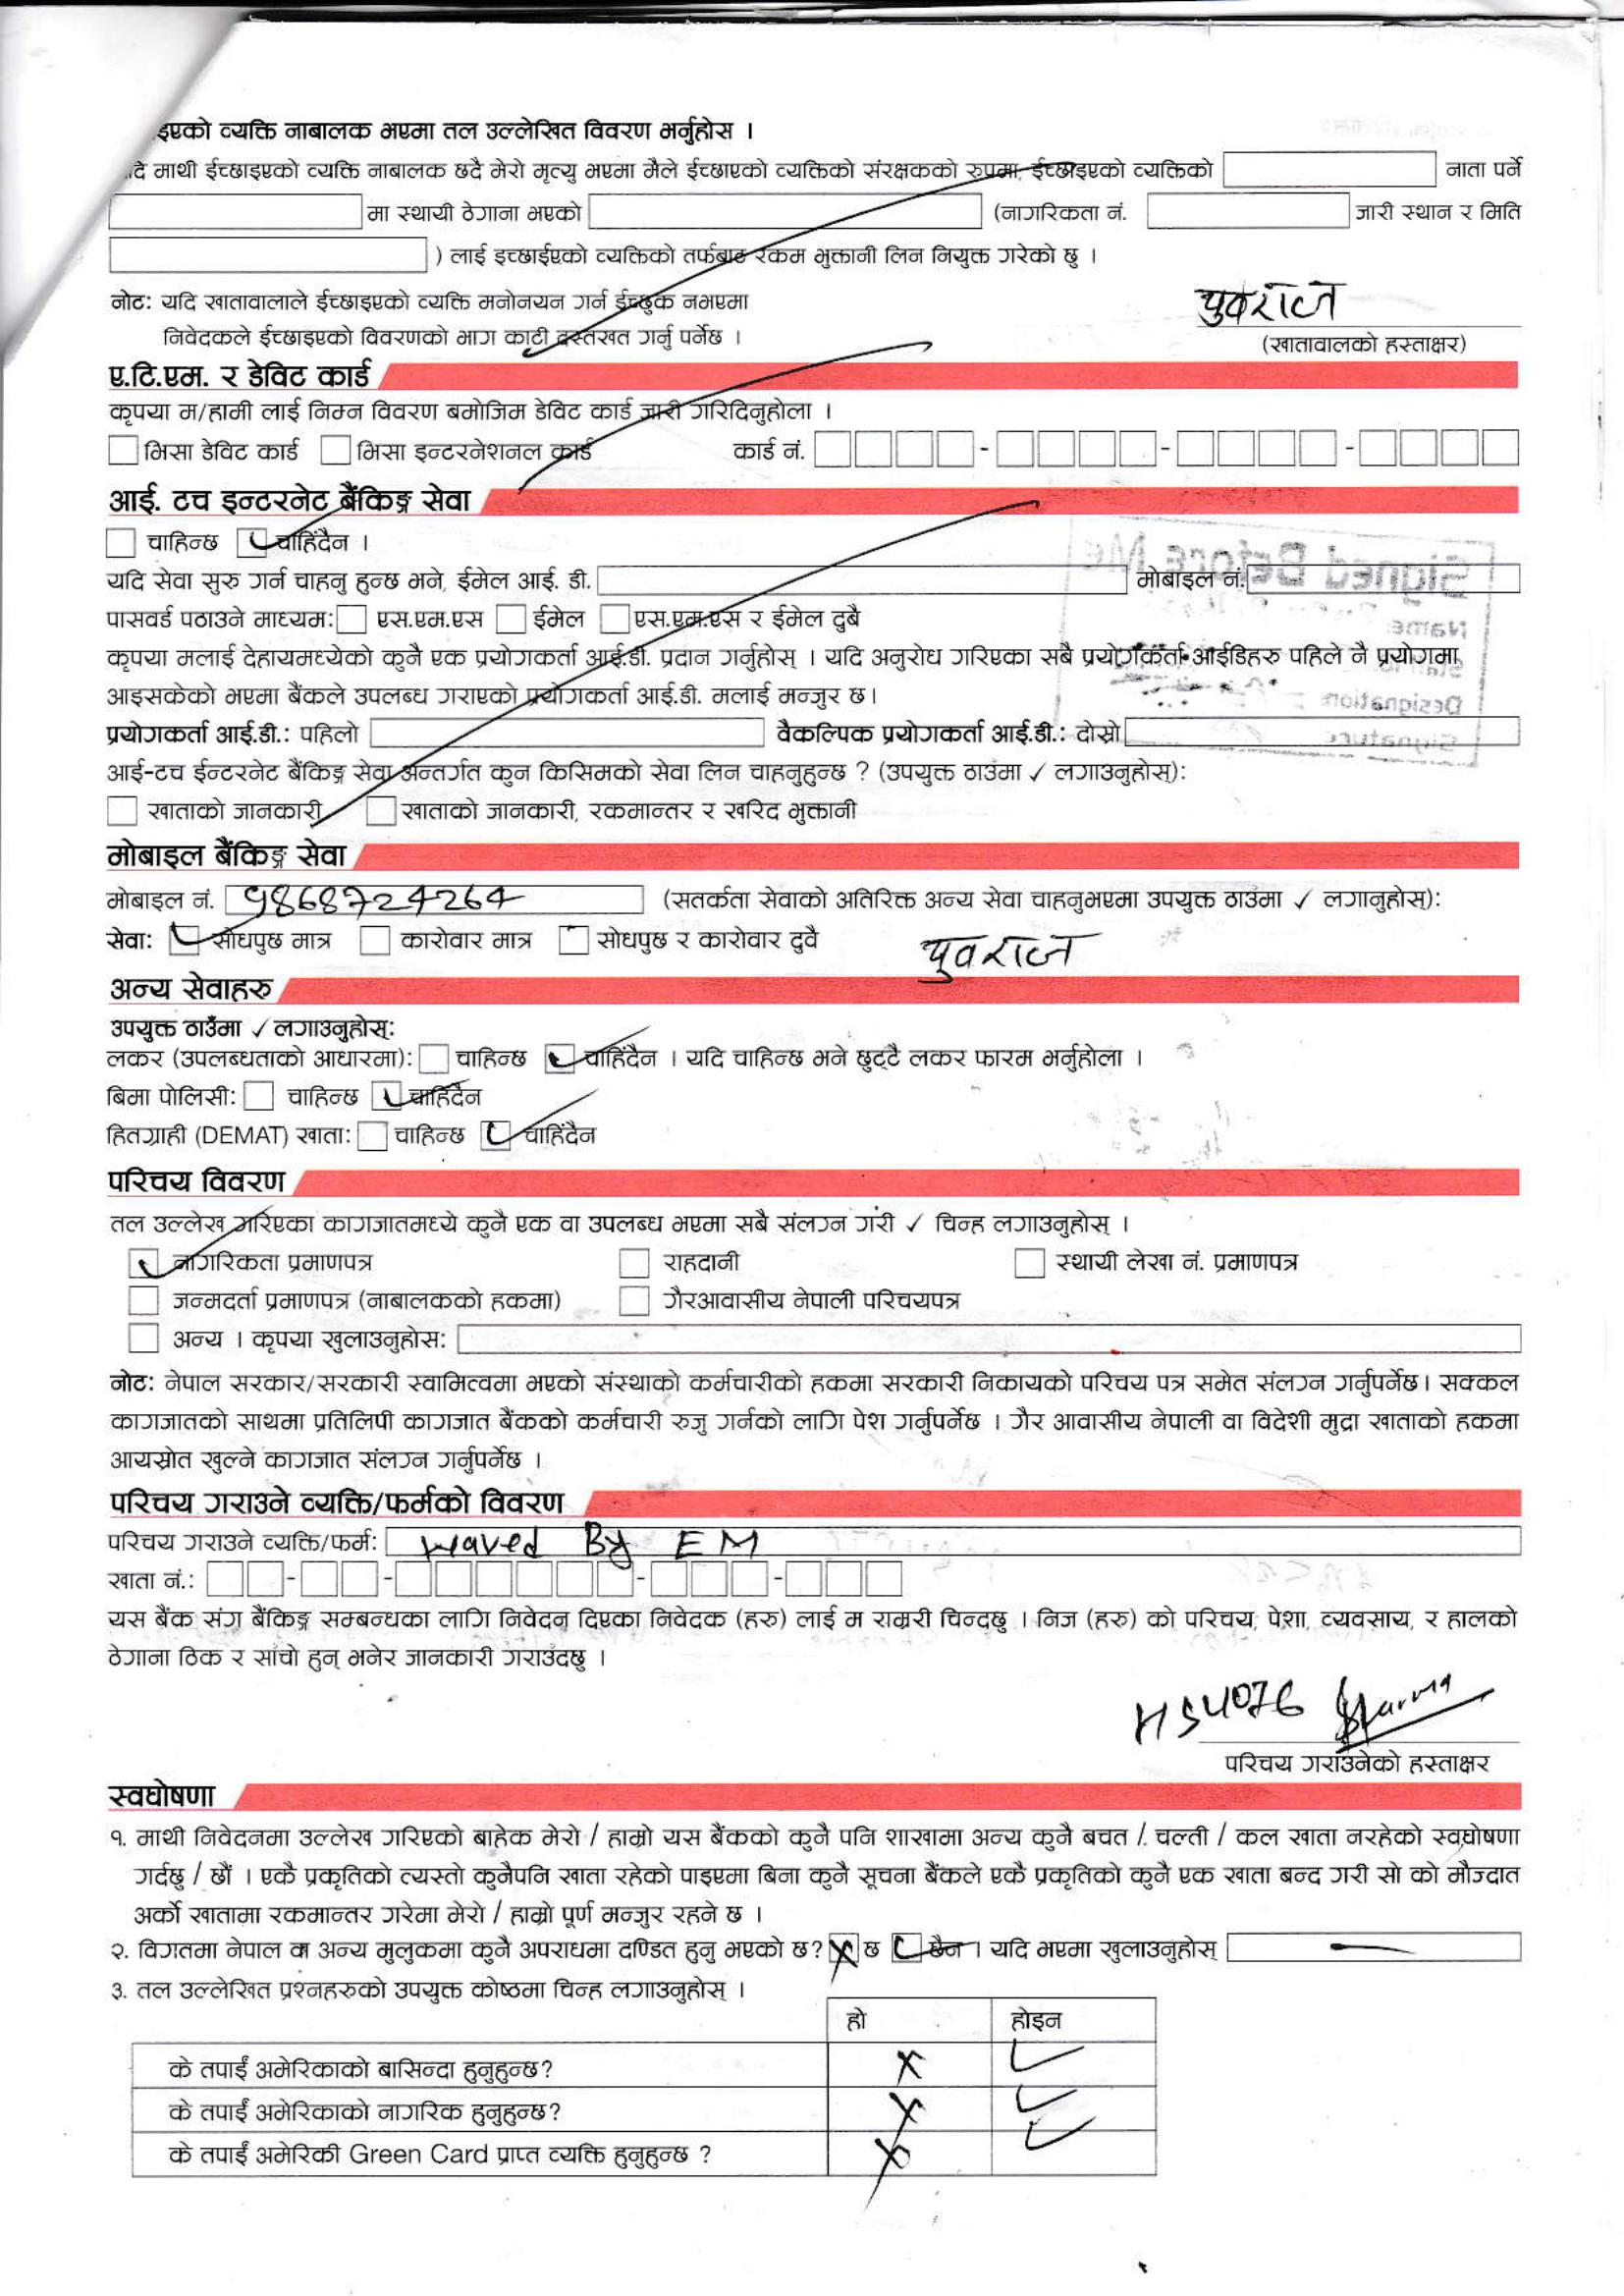 इएको व्यक्ति नाबालक भएमा तल उल्लेखित विवरण भर्नुहोस ।
दि माथी ईच्छाइएको व्यक्ति नाबालक छदै मेरो मृत्यु भएमा मैले ईच्छाएको व्यक्तिको संरक्षकको रुपमा, ईच्छाइएको व्यक्तिको नाता पर्ने
मा स्थायी ठेगाना भएको (नागरिकता नं. जारी स्थान र मिति
) लाई इच्छाईएको व्यक्तिको तर्फबाट रकम भुक्तानी लिन नियुक्त गरेको छु ।
नोट: यदि खातावालाले ईच्छाइएको व्यक्ति मनोनयन गर्न ईच्छुक नभएमा
निवेदकले ईच्छाइएको विवरणको भाग काटी दस्तखत गर्नु पर्नेछ ।
युवराज
(खातावालको हस्ताक्षर)
ए.टि.एम. र डेविट कार्ड
कृपया म/हामी लाई निम्न विवरण बमोजिम डेविट कार्ड जारी गरिदिनुहोला ।
भिसा डेविट कार्ड भिसा इन्टरनेशनल कार्ड कार्ड नं. - - -
आई. टच इन्टरनेट बैंकिङ्ग सेवा
चाहिन्छ चाहिंदैन ।
यदि सेवा सुरु गर्न चाहनु हुन्छ भने, ईमेल आई. डी. मोबाइल नं.
पासवर्ड पठाउने माध्यम: एस.एम.एस ईमेल एस.एम.एस र ईमेल दुबै
कृपया मलाई देहायमध्येको कुनै एक प्रयोगकर्ता आई.डी. प्रदान गर्नुहोस् । यदि अनुरोध गरिएका सबै प्रयोगकर्ता आईडिहरु पहिले नै प्रयोगमा
आइसकेको भएमा बैंकले उपलब्ध गराएको प्रयोगकर्ता आई.डी. मलाई मन्जुर छ।
प्रयोगकर्ता आई.डी.: पहिलो वैकल्पिक प्रयोगकर्ता आई.डी.: दोस्रो
आई-टच ईन्टरनेट बैंकिङ्ग सेवा अन्तर्गत कुन किसिमको सेवा लिन चाहनुहुन्छ ? (उपयुक्त ठाउंमा ✓ लगाउनुहोस्):
खाताको जानकारी खाताको जानकारी, रकमान्तर र खरिद भुक्तानी
Signed Before Me
Name
Designation
Signature
मोबाइल बैंकिङ्ग सेवा
मोबाइल नं. 9868724264 (सतर्कता सेवाको अतिरिक्त अन्य सेवा चाहनुभएमा उपयुक्त ठाउंमा ✓ लगानुहोस्):
सेवा: सोधपुछ मात्र कारोवार मात्र सोधपुछ र कारोवार दुवै युवराज
अन्य सेवाहरु
उपयुक्त ठाउँमा ✓ लगाउनुहोस्:
लकर (उपलब्धताको आधारमा): चाहिन्छ चाहिंदैन । यदि चाहिन्छ भने छुट्टै लकर फारम भर्नुहोला ।
बिमा पोलिसी: चाहिन्छ चाहिंदैन
हितग्राही (DEMAT) खाता: चाहिन्छ चाहिंदैन
परिचय विवरण
तल उल्लेख गरिएका कागजातमध्ये कुनै एक वा उपलब्ध भएमा सबै संलग्न गरी ✓ चिन्ह लगाउनुहोस् ।
नागरिकता प्रमाणपत्र राहदानी स्थायी लेखा नं. प्रमाणपत्र
जन्मदर्ता प्रमाणपत्र (नाबालकको हकमा) गैरआवासीय नेपाली परिचयपत्र
अन्य । कृपया खुलाउनुहोस:
नोट: नेपाल सरकार/सरकारी स्वामित्वमा भएको संस्थाको कर्मचारीको हकमा सरकारी निकायको परिचय पत्र समेत संलग्न गर्नुपर्नेछ। सक्कल
कागजातको साथमा प्रतिलिपी कागजात बैंकको कर्मचारी रुजु गर्नको लागि पेश गर्नुपर्नेछ । गैर आवासीय नेपाली वा विदेशी मुद्रा खाताको हकमा
आयस्रोत खुल्ने कागजात संलग्न गर्नुपर्नेछ ।
परिचय गराउने व्यक्ति/फर्मको विवरण
परिचय गराउने व्यक्ति/फर्म: Waved By EM
खाता नं.: - - - -
यस बैंक संग बैंकिङ्ग सम्बन्धका लागि निवेदन दिएका निवेदक (हरु) लाई म राम्ररी चिन्दछु । निज (हरु) को परिचय, पेशा, व्यवसाय, र हालको
ठेगाना ठिक र सांचो हुन् भनेर जानकारी गराउंदछु ।
HS4076 Sharma
परिचय गराउनेको हस्ताक्षर
स्वघोषणा
१. माथी निवेदनमा उल्लेख गरिएको बाहेक मेरो / हाम्रो यस बैंकको कुनै पनि शाखामा अन्य कुनै बचत / चल्ती / कल खाता नरहेको स्वघोषणा
गर्दछु / छौं । एकै प्रकृतिको त्यस्तो कुनैपनि खाता रहेको पाइएमा बिना कुनै सूचना बैंकले एकै प्रकृतिको कुनै एक खाता बन्द गरी सो को मौज्दात
अर्को खातामा रकमान्तर गरेमा मेरो / हाम्रो पूर्ण मन्जुर रहने छ ।
२. विगतमा नेपाल वा अन्य मुलुकमा कुनै अपराधमा दण्डित हुनु भएको छ? छ छैन । यदि भएमा खुलाउनुहोस्
३. तल उल्लेखित प्रश्नहरुको उपयुक्त कोष्ठमा चिन्ह लगाउनुहोस् ।
हो होइन
के तपाईं अमेरिकाको बासिन्दा हुनुहुन्छ?
के तपाईं अमेरिकाको नागरिक हुनुहुन्छ?
के तपाईं अमेरिकी Green Card प्राप्त व्यक्ति हुनुहुन्छ ?